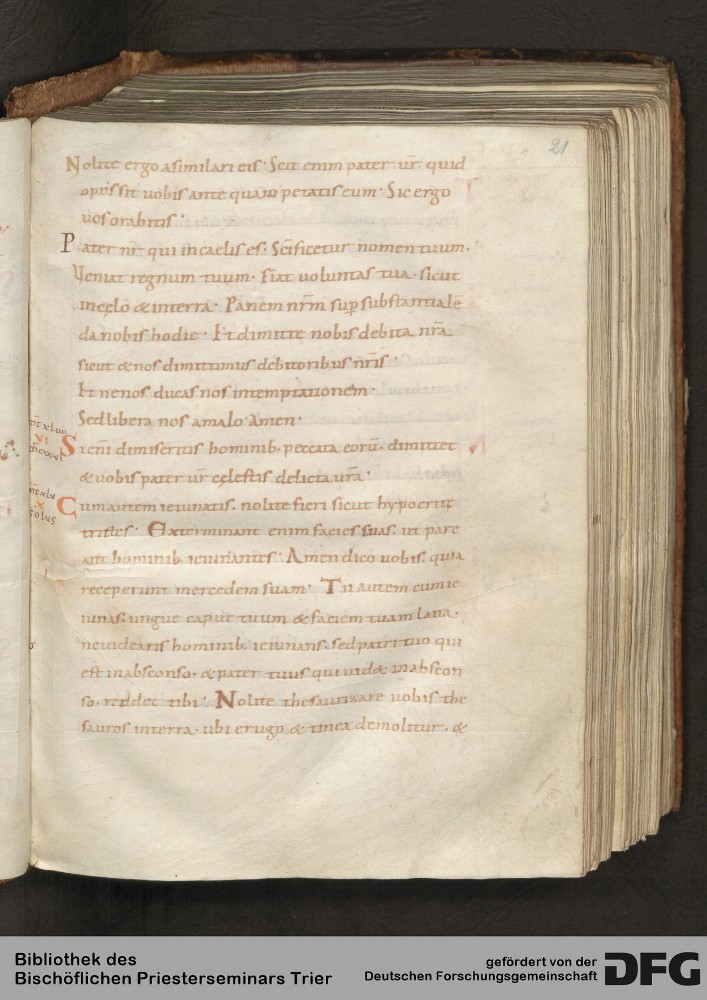 21
Nolite ergo asimilari eis· Scit enim pater ur̄ quid
opus sit uobis ante quam petatis eum· Sic ergo
uos orabitis·
Pater nr̄ qui in caelis es· Sc̄ificetur nomen tuum·
Veniat regnum tuum· Fiat uoluntas tua· sicut
in cęlo & in terra· Panem nr̄m sup̱substantialē
da nobis hodie· Et dimitte nobis debita nr̄a
sicut & nos dimittimus debitoribus nr̄is·
Et ne nos ducas nos in temptationem·
Sed libera nos a malo· Amen·
Si eni dimiseritis hominib· peccata eorū· dimittet
& uobis pater ur̄ cęlestis delicta ur̄a·
Cum autem ieiunatis· nolite fieri sicut hypocritę
tristes· Exterminant enim facies suas· ut pare
ant hominib· ieiunantes· Amen dico uobis· quia
receperunt mercedem suam· Tu autem cum ie
iunas· ungue caput tuum & faciem tuam laua·
ne uidearis hominib· ieiunans· sed patri tuo qui
est in absconso· & pater tuus qui uid& in abscon
so· reddet tibi· Nolite thesaurizare uobis the
sauros in terra· ubi erugo & tinea demolitur· &
Bibliothek des
Bischöflichen Priesterseminars Trier
gefördert von der
Deutschen Forschungsgemeinschaft
DFG